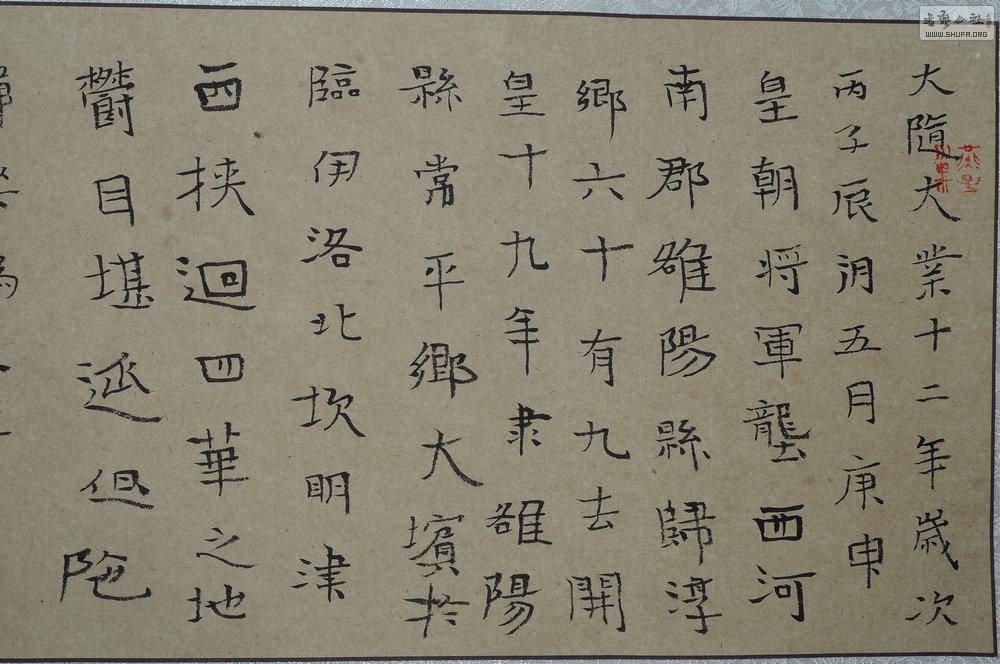 大隨大業十二年歲次
丙子辰朔五月庚申
皇朝将軍龔西河
南郡雒陽縣歸淳
鄉六十有九去開
皇十九年隶雒陽
縣常平鄉大於
臨伊洛北坎明津
西挾迴四華之地
欝目堪但陁
WWW.SHUFA.ORG